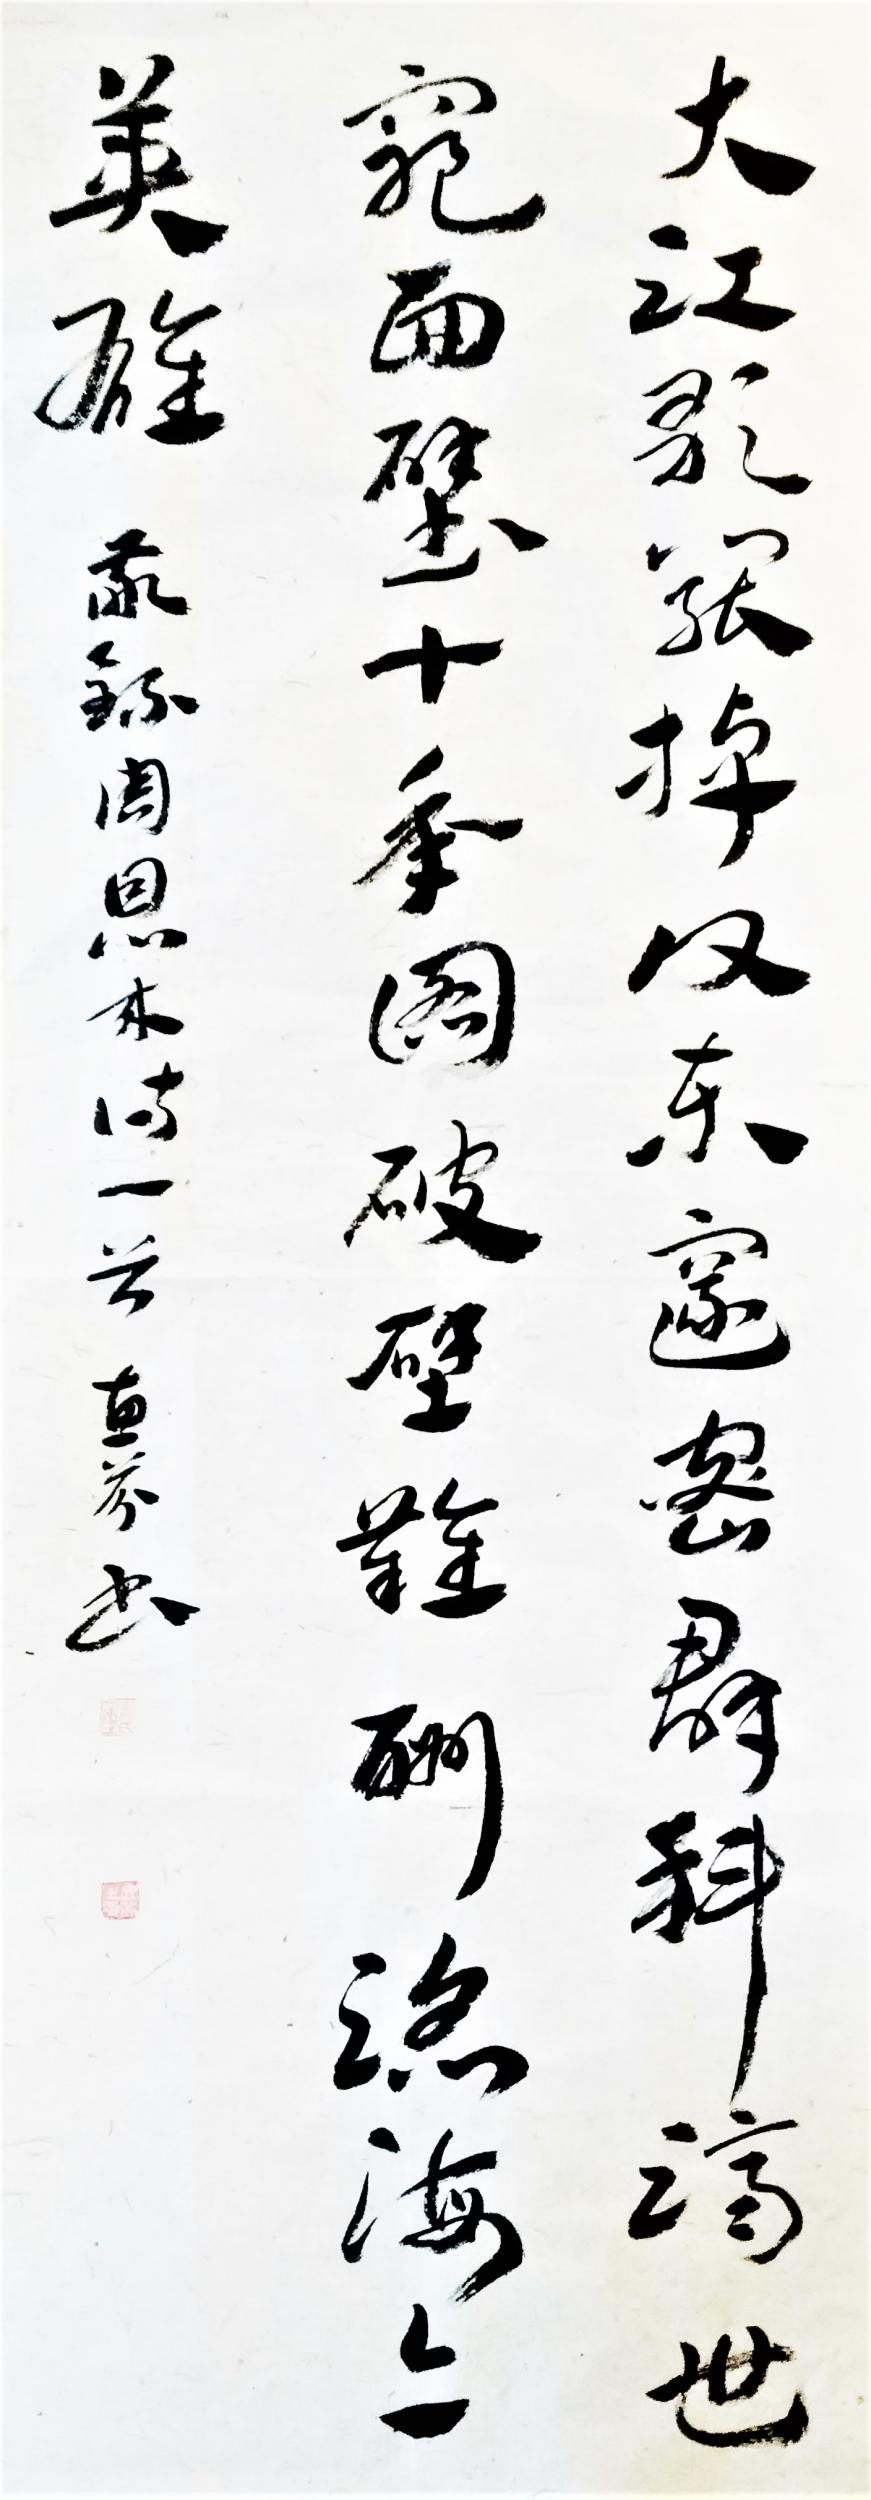 大江歌罷掉头东邃密群科濟世
窮面壁十年图破壁難酬蹈海亦
英雄 敬録周恩来诗一首 惠芬书